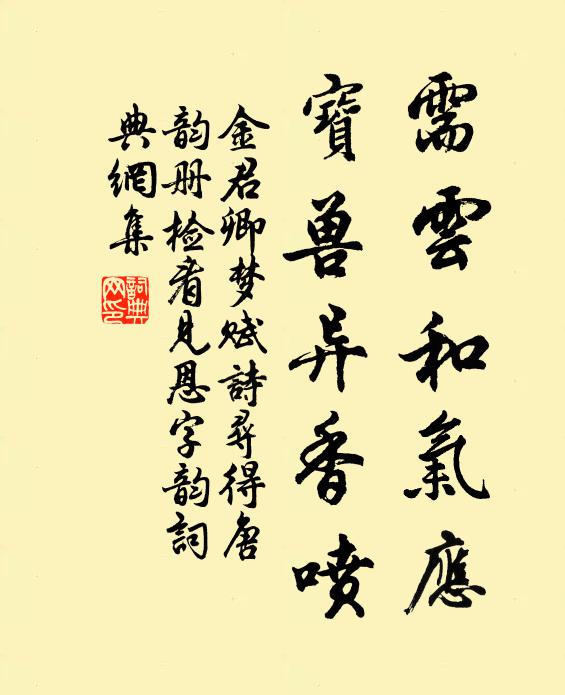 需雲和氣應
寶兽异香噴
金君卿梦赋詩尋得唐
韵册检看见恩字韵詞
典網集
詞典網印